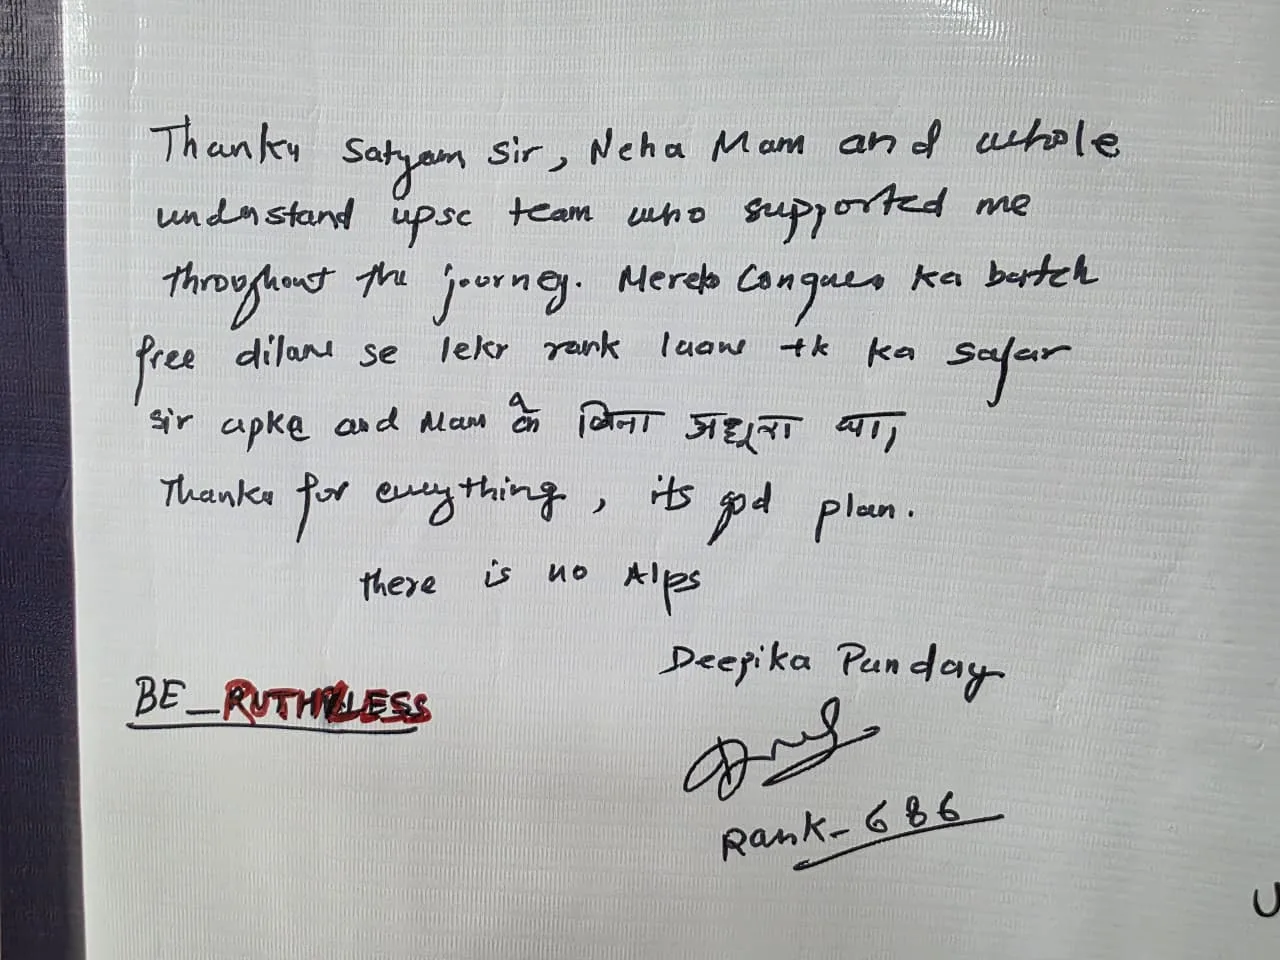 Thanku Satyam Sir, Neha Mam and whole
understand upsc team who supported me
throughout the journey. Mereko Conquer ka batch
free dilane se lekr rank laane tk ka safar
sir apke and Mam के बिना अधूरा था,
Thanks for everything, its god plan.
there is no Alps
Deepika Panday
BE_RUTHLESS
Rank- 686
U